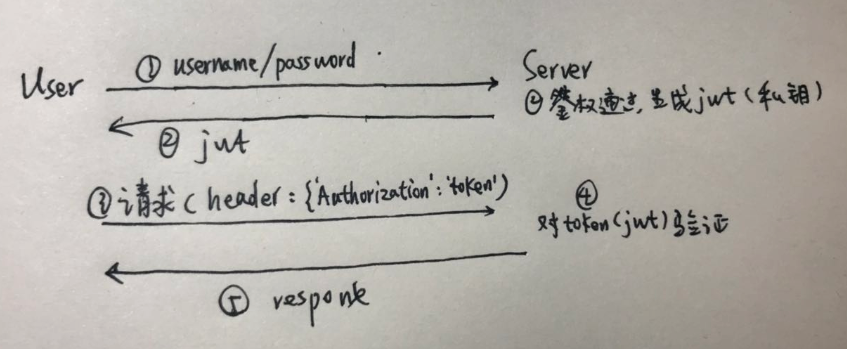 User
① username/password
Server
② 鉴权通过,生成jwt(私钥)
② jwt
③ 请求(header:{'Authorization':'token')
④
对token(jwt)验证
⑤ response